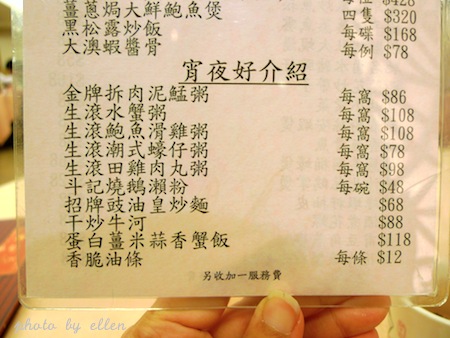 薑蔥焗大鮮鮑魚煲 四隻 $320
黑松露炒飯 每碟 $168
大澳蝦醬骨 每例 $78
宵夜好介紹
金牌拆肉泥鯭粥 每窩 $86
生滾水蟹粥 每窩 $108
生滾鮑魚滑雞粥 每窩 $108
生滾潮式蠔仔粥 每窩 $78
生滾田雞肉丸粥 每窩 $98
斗記燒鵝瀨粉 每碗 $48
招牌豉油皇炒麵 $68
干炒牛河 $88
蛋白薑米蒜香蟹飯 $118
香脆油條 每條 $12
另收加一服務費
photo by ellen